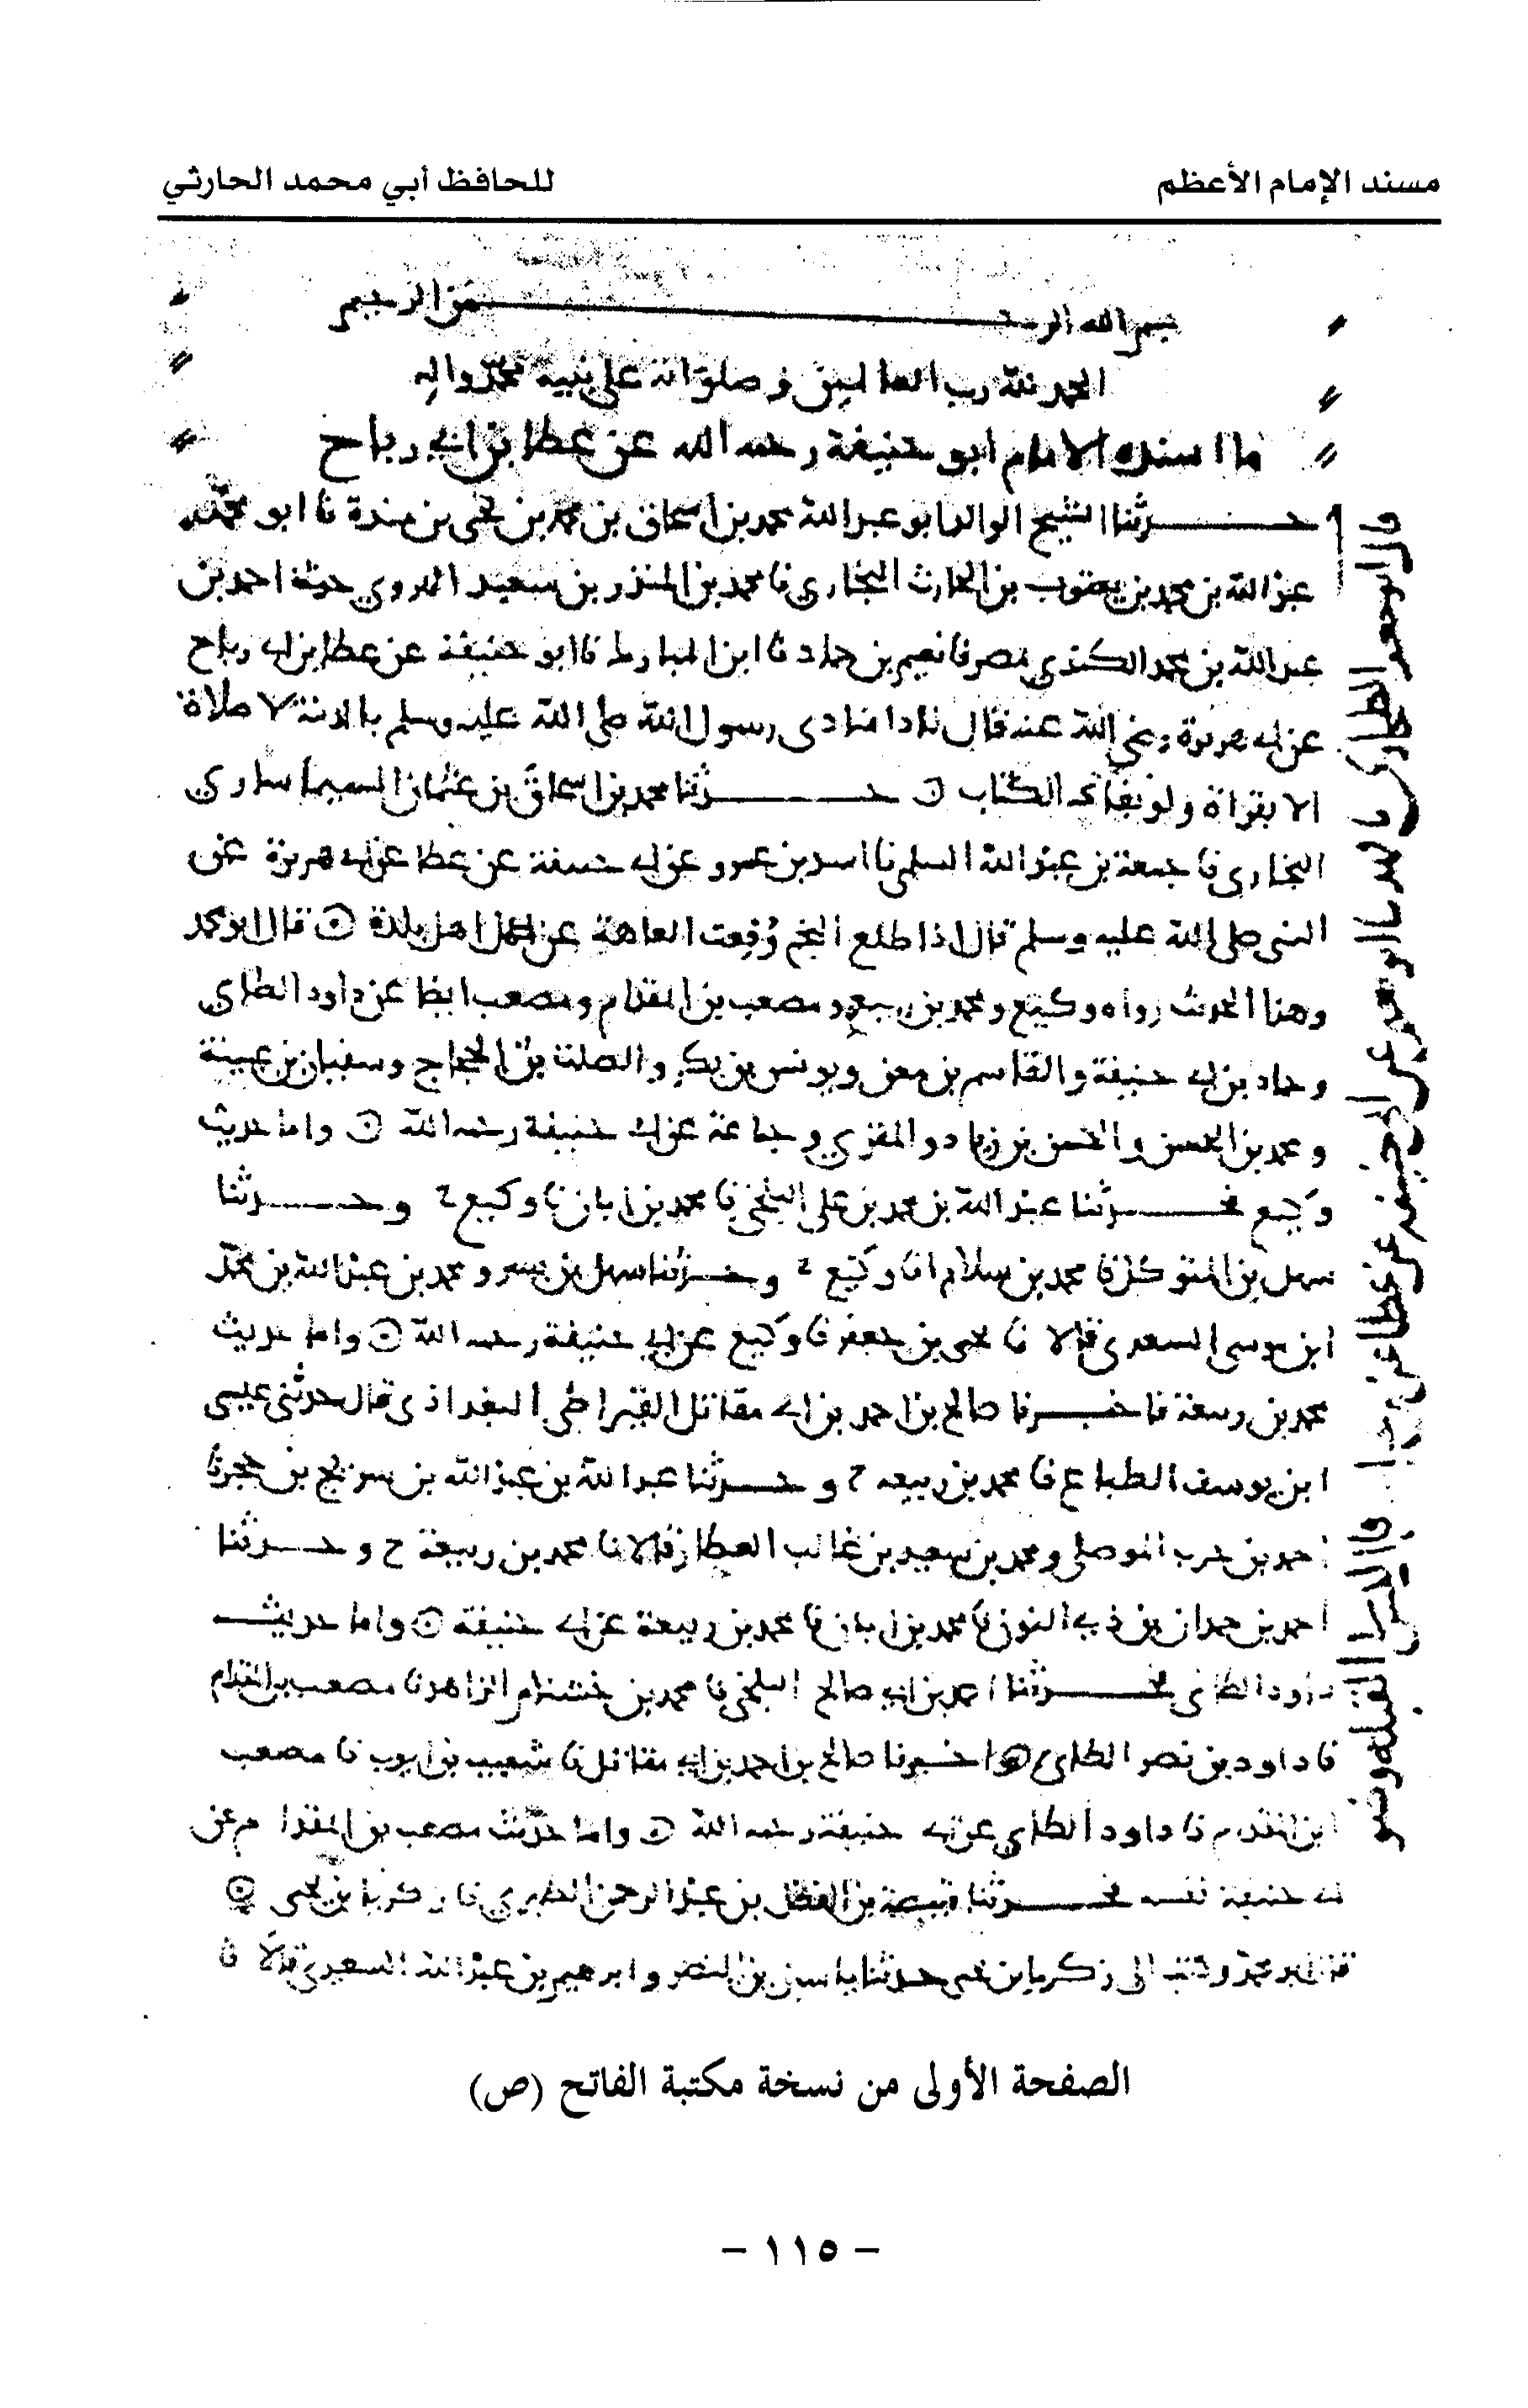 مسند الإمام الأعظم
للحافظ أبي محمد الحارثي
بسم الله الرحمن الرحيم
الحمد لله رب العالمين وصلواته على نبيه محمد واله
ما اسنده الامام ابو حنيفة رحمه الله عن عطا بن ابي رباح
حدثنا الشيخ الوالد ابو عبد الله محمد بن اسحاق بن محمد بن يحيى بن مندة نا ابو محمد
عبد الله بن محمد بن يعقوب بن الحارث البخاري نا محمد بن المنذر بن سعيد الهروي حدثنا احمد بن
عبد الله بن محمد الكندي بمصر نا نعيم بن حماد نا ابن المبارك نا ابو حنيفة عن عطا بن ابي رباح
عن ابي هريرة رضي الله عنه قال نادا منادى رسول الله صلى الله عليه وسلم بالمدينة لا صلاة
الا بقراة ولو بفاتحة الكتاب ۞ حدثنا محمد بن اسحاق بن عثمان السمساري
البخاري نا جمعة بن عبد الله السلمي نا اسد بن عمرو عن ابي حنيفة عن عطا عن ابي هريرة عن
النبي صلى الله عليه وسلم قال اذا طلع النجم رفعت العاهة عن اهل بلدة ۞ قال ابو محمد
وهذا الحديث رواه وكيع ومحمد بن ربيعة ومصعب بن المقدام ومصعب ايضا عن داود الطاي
وحماد بن ابي حنيفة والقاسم بن معن ويونس بن بكير والصلت بن الحجاج وسفيان بن عيينة
ومحمد بن الحسن والحسن بن زياد والمقري وجماعة عن ابي حنيفة رحمه الله ۞ واما حديث
وكيع فحدثنا عبد الله بن محمد بن علي البلخي نا محمد بن ابان نا وكيع ح وحدثنا
سهل بن المتوكل نا محمد بن سلام انا وكيع ح وحدثنا سهل بن بسر ومحمد بن عبد الله بن محمد
ابن موسى السعدي قالا نا يحيى بن جعفر نا وكيع عن ابي حنيفة رحمه الله ۞ واما حديث
محمد بن ربيعة فاخبرنا صالح بن احمد بن ابي مقاتل القيراطي البغداذي قال حدثني عيسى
ابن يوسف الطباع نا محمد بن ربيعه ح وحدثنا عبد الله بن عبد الله بن سريج بن حجر نا
احمد بن حرب الموصلي ومحمد بن سعيد بن غالب العطار قالا نا محمد بن ربيعة ح وحدثنا
احمد بن حمدان بن ذي النون نا محمد بن ابان نا محمد بن ربيعة عن ابي حنيفة ۞ واما حديث
داود الطاي فحدثنا احمد بن ابي صالح البلخي نا محمد بن خشنام الزاهد نا مصعب بن المقدام
نا داود بن نصر الطاي ۞ واخبرنا صالح بن احمد بن ابي مقاتل نا شعيب بن ايوب نا مصعب
ابن المقدام نا داود الطاي عن ابي حنيفة رحمه الله ۞ واما حديث مصعب بن المقدام عن
ابي حنيفة نفسه فحدثنا قبيصة بن الفضل بن عبد الرحمن الطبري نا زكريا بن يحيى ۞
قال ابو محمد وكتب الى زكريا بن يحيى حدثنا ياسين بن النضر وابرهيم بن عبد الله السعدي قالا نا
الصفحة الأولى من نسخة مكتبة الفاتح (ص)
- ١١٥ -